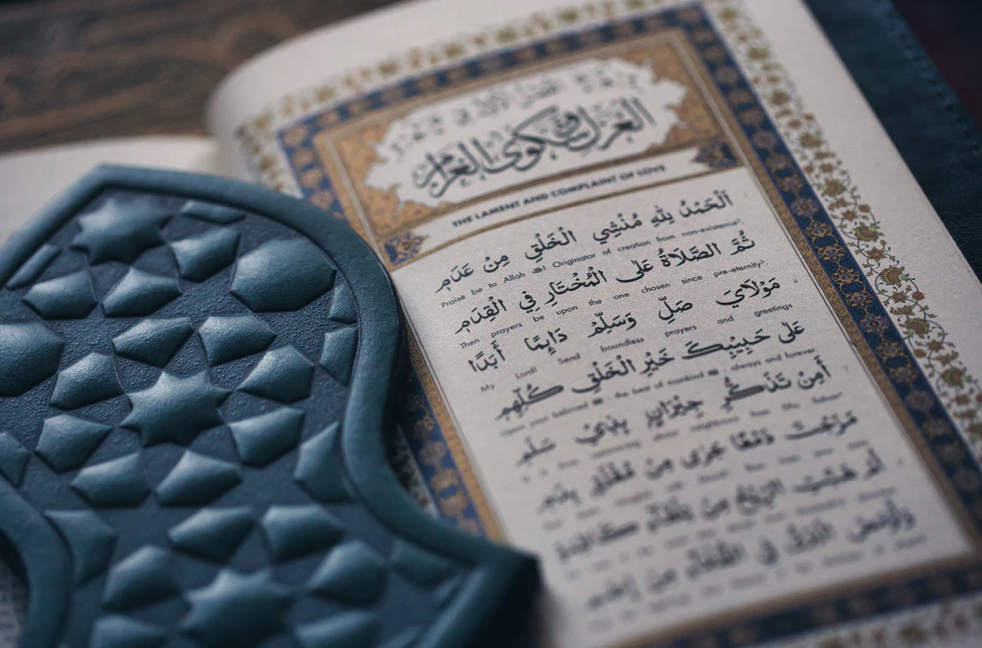 الغزل وشكوى الغرام
THE LAMENT AND COMPLAINT OF LOVE
اَلْحَمْدُ لِلّٰهِ مُنْشِي الْخَلْقِ مِنْ عَدَمِ
Praise be to Allah ﷻ! Originator of creation from non-existence!
ثُمَّ الصَّلَاةُ عَلَى الْمُخْتَارِ فِي الْقِدَمِ
Then prayers be upon the one chosen since pre-eternity!
مَوْلَايَ صَلِّ وَسَلِّمْ دَائِمًا أَبَدًا
My Lord! Send boundless prayers and greetings
عَلَى حَبِيبِكَ خَيْرِ الْخَلْقِ كُلِّهِمِ
Upon your beloved ﷺ, the best of mankind ﷺ, always and forever
أَمِنْ تَذَكُّرِ جِيْرَانٍ بِذِيْ سَلَمِ
مَزَجْتَ دَمْعًا جَرَى مِنْ مُقْلَةٍ بِدَمِ
أَمْ هَبَّتِ الرِّيْحُ مِنْ تِلْقَاءِ كَاظِمَةٍ
وَأَوْمَضَ الْبَرْقُ فِي الظَّلْمَاءِ مِنْ إِضَمِ